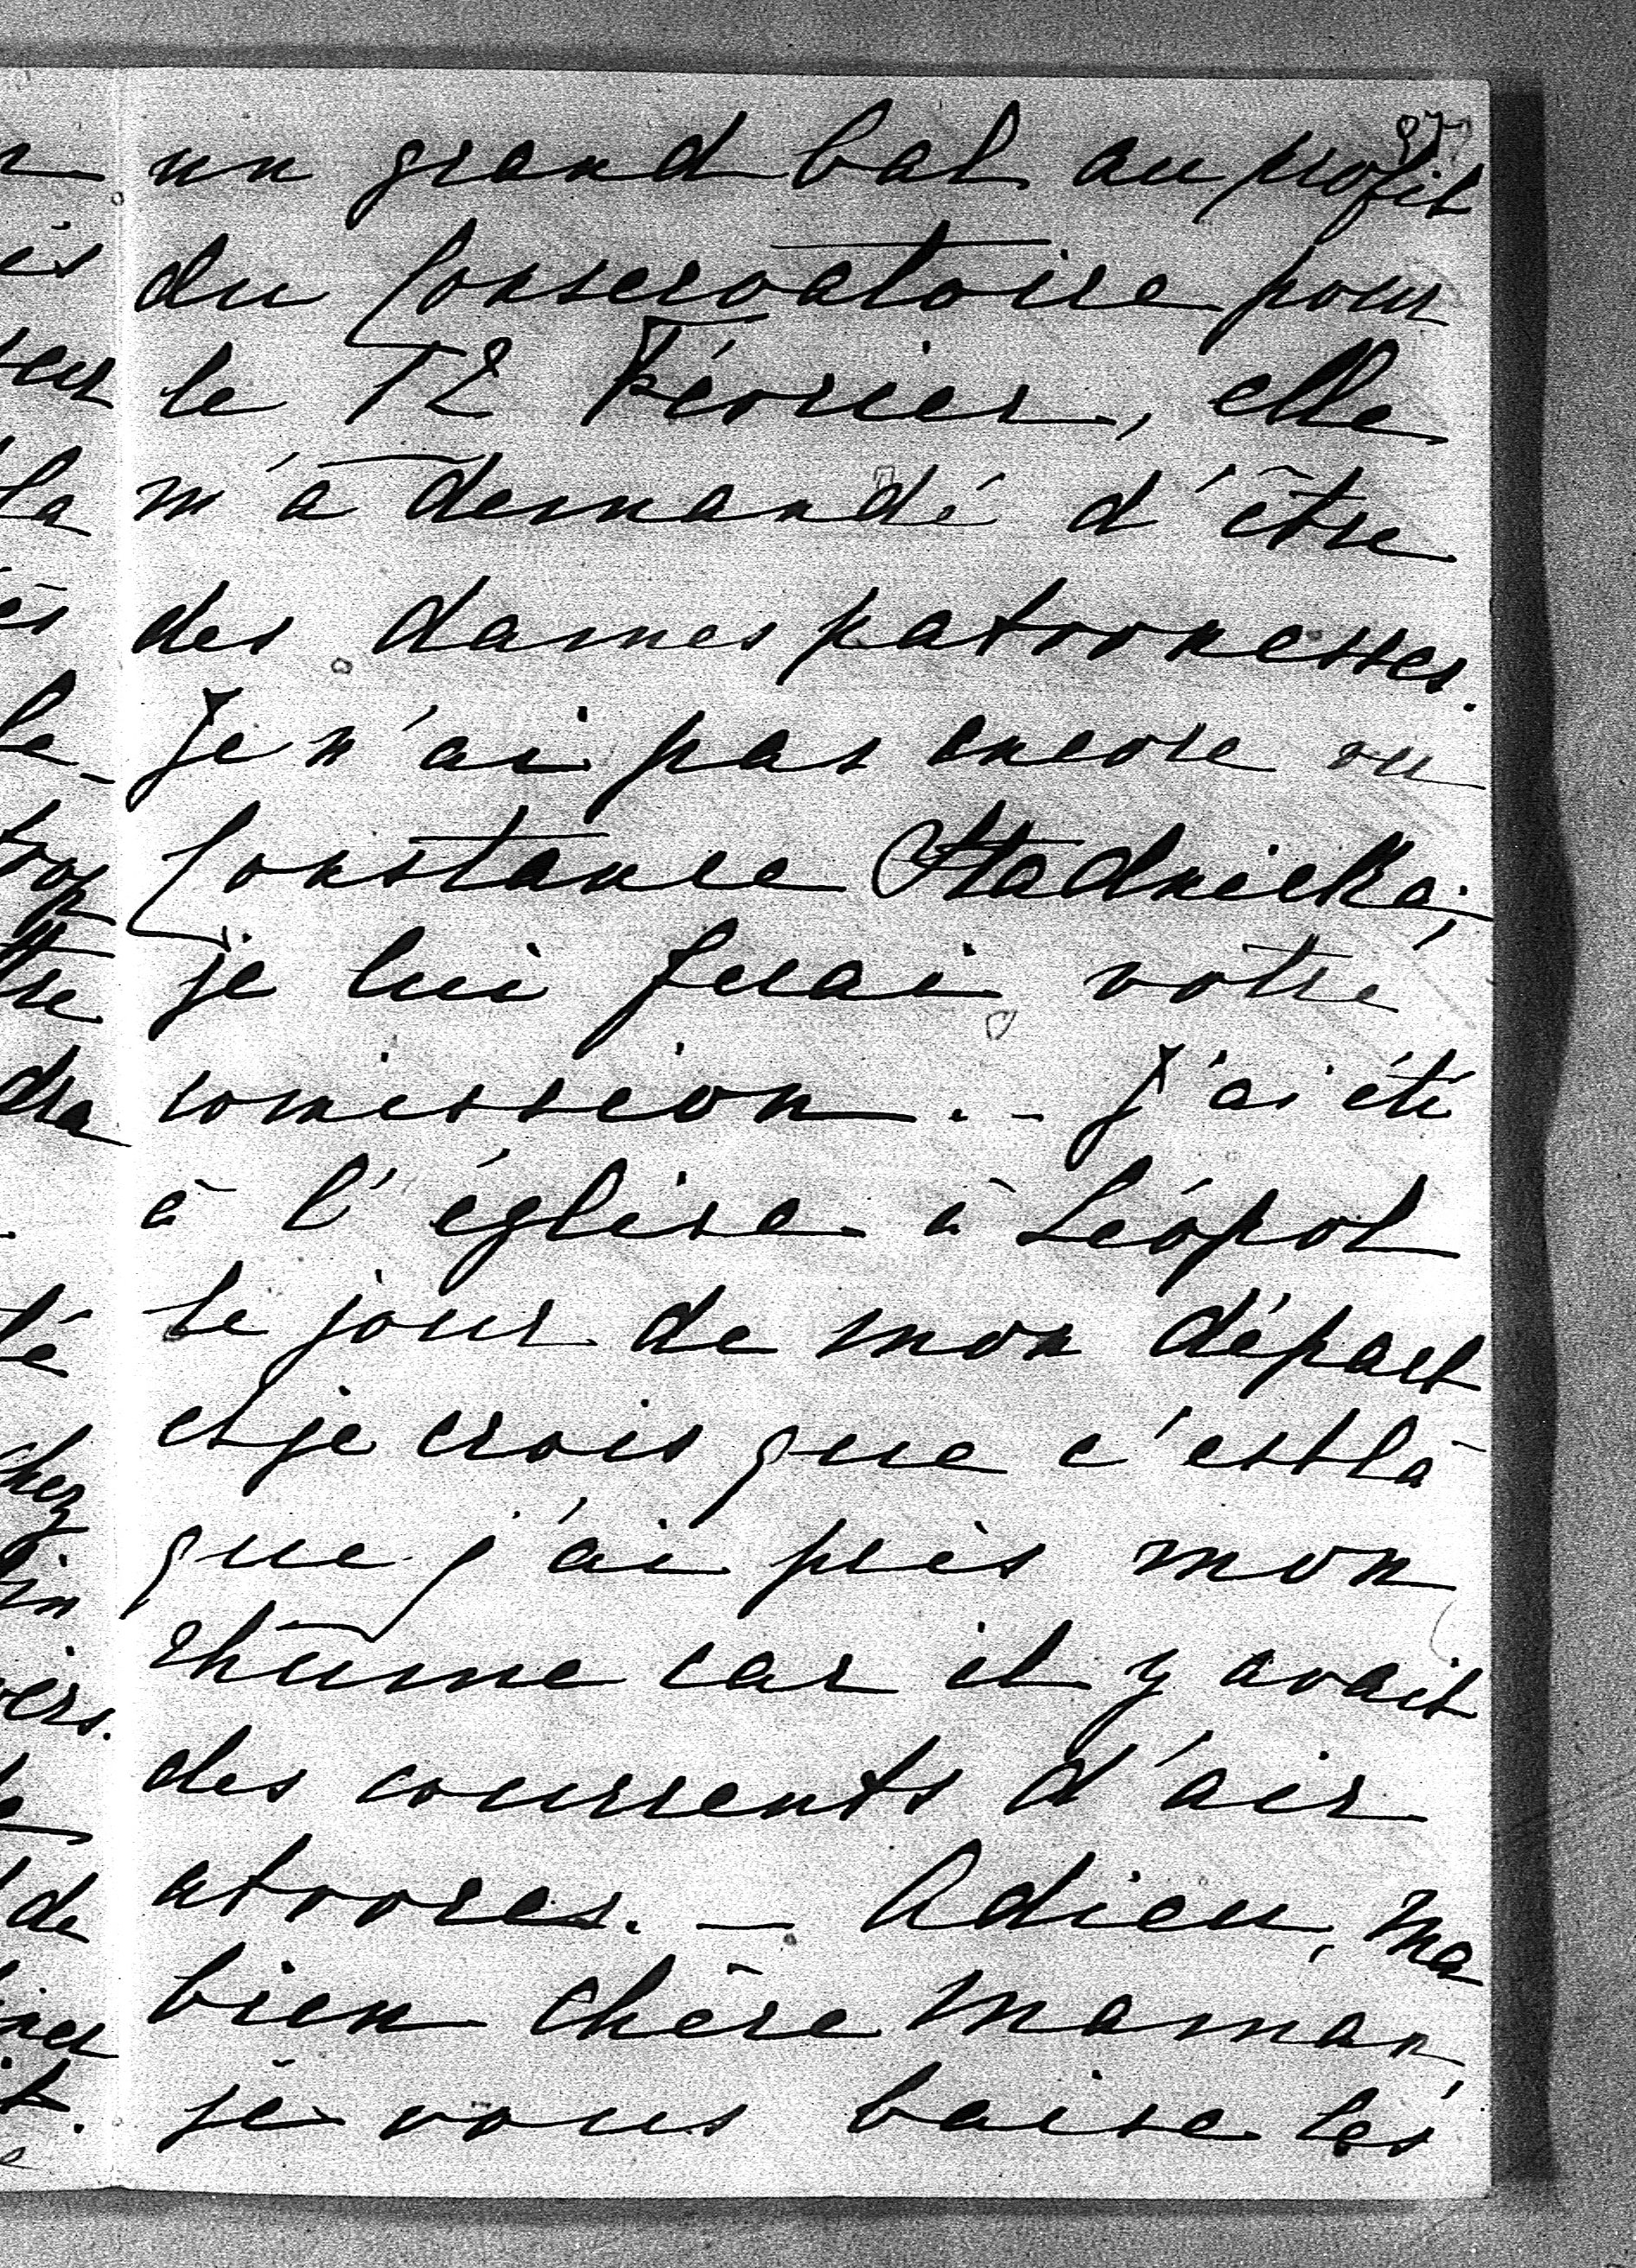 87
un grand bal au profit
du Conservatoire pour
le 12 Février, elle
m'a demandé d'être
des dames patronesses.
Je n'ai pas encore vu
Constance Stadnicka;
je lui ferai votre
comission. - J'ai été
à l'église à Léopol
le jour de mon départ
et je crois que c'est là
que j'ai pris mon
rhume car il y avait
des courrents d'air
atroces. - Adieu, ma
bien chère Maman,
je vous baise les